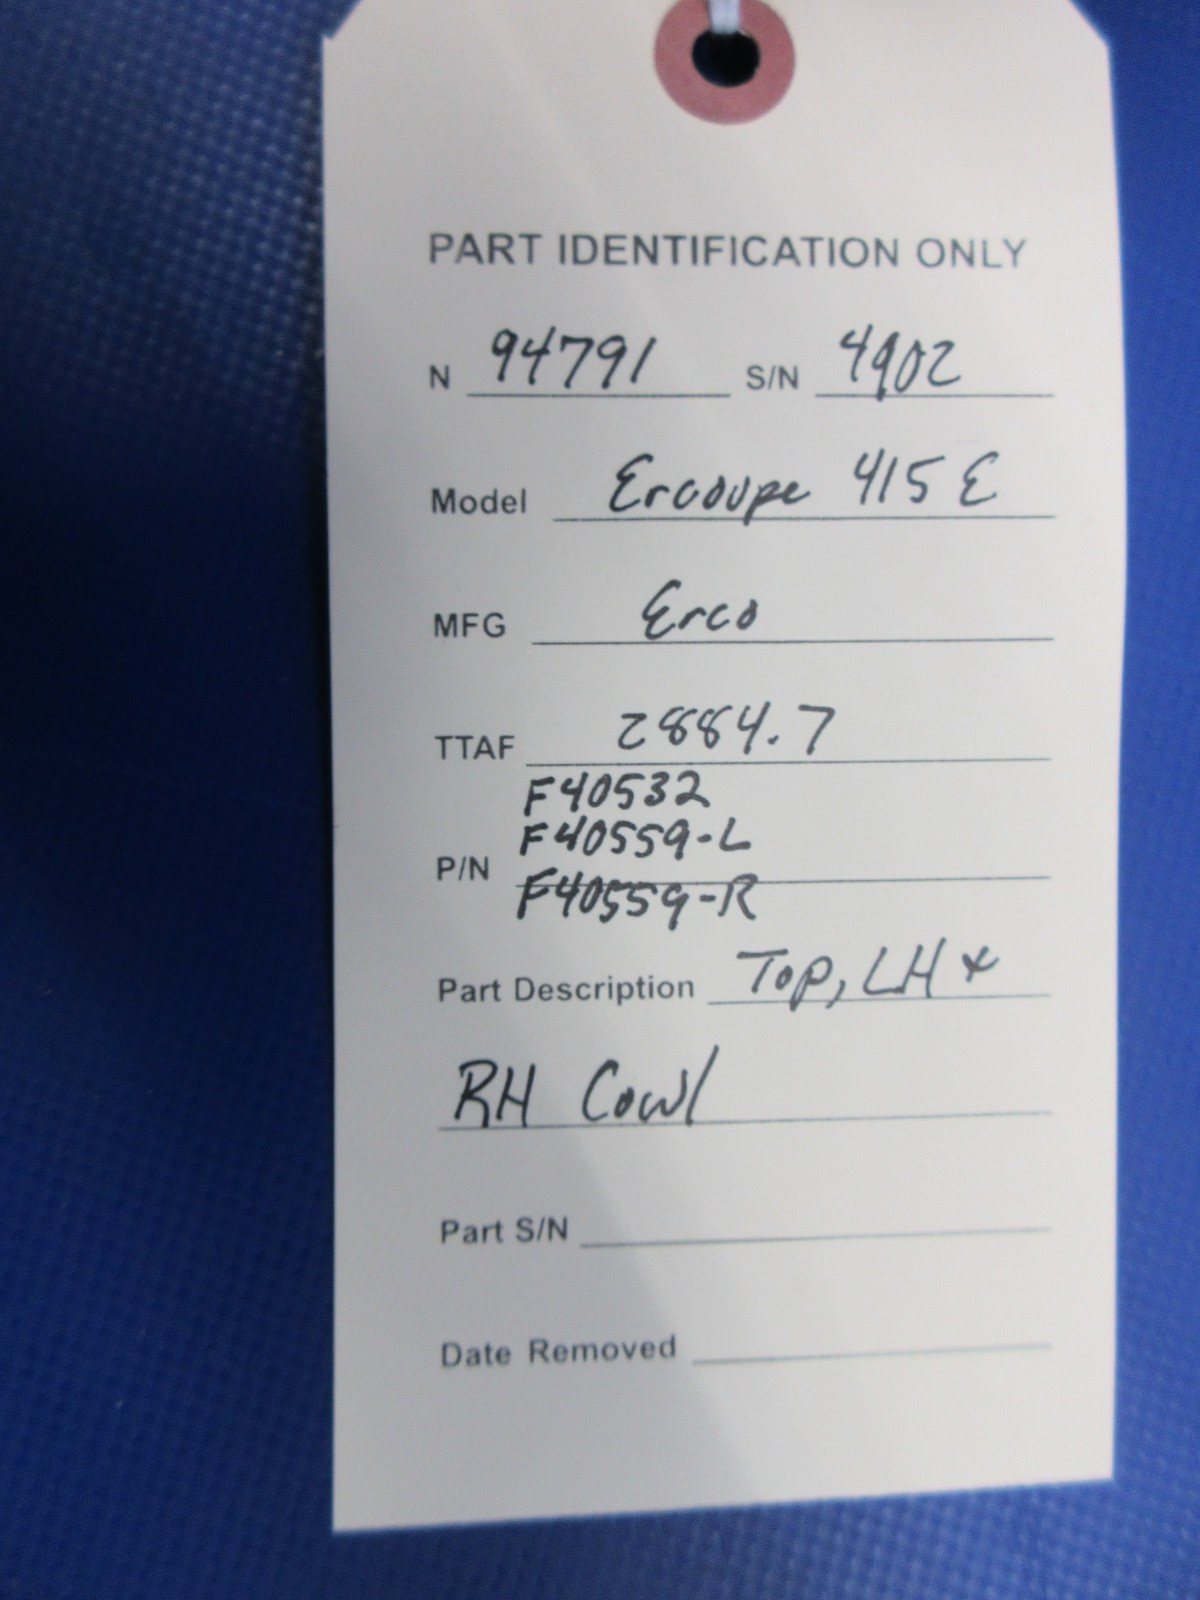 PART IDENTIFICATION ONLY
N 94791 S/N 4902
Model Ercoupe 415 E
MFG Erco
TTAF 2884.7
F40532
F40559-L
P/N
F40559-R
Part Description Top, LH &
RH Cowl
Part S/N
Date Removed